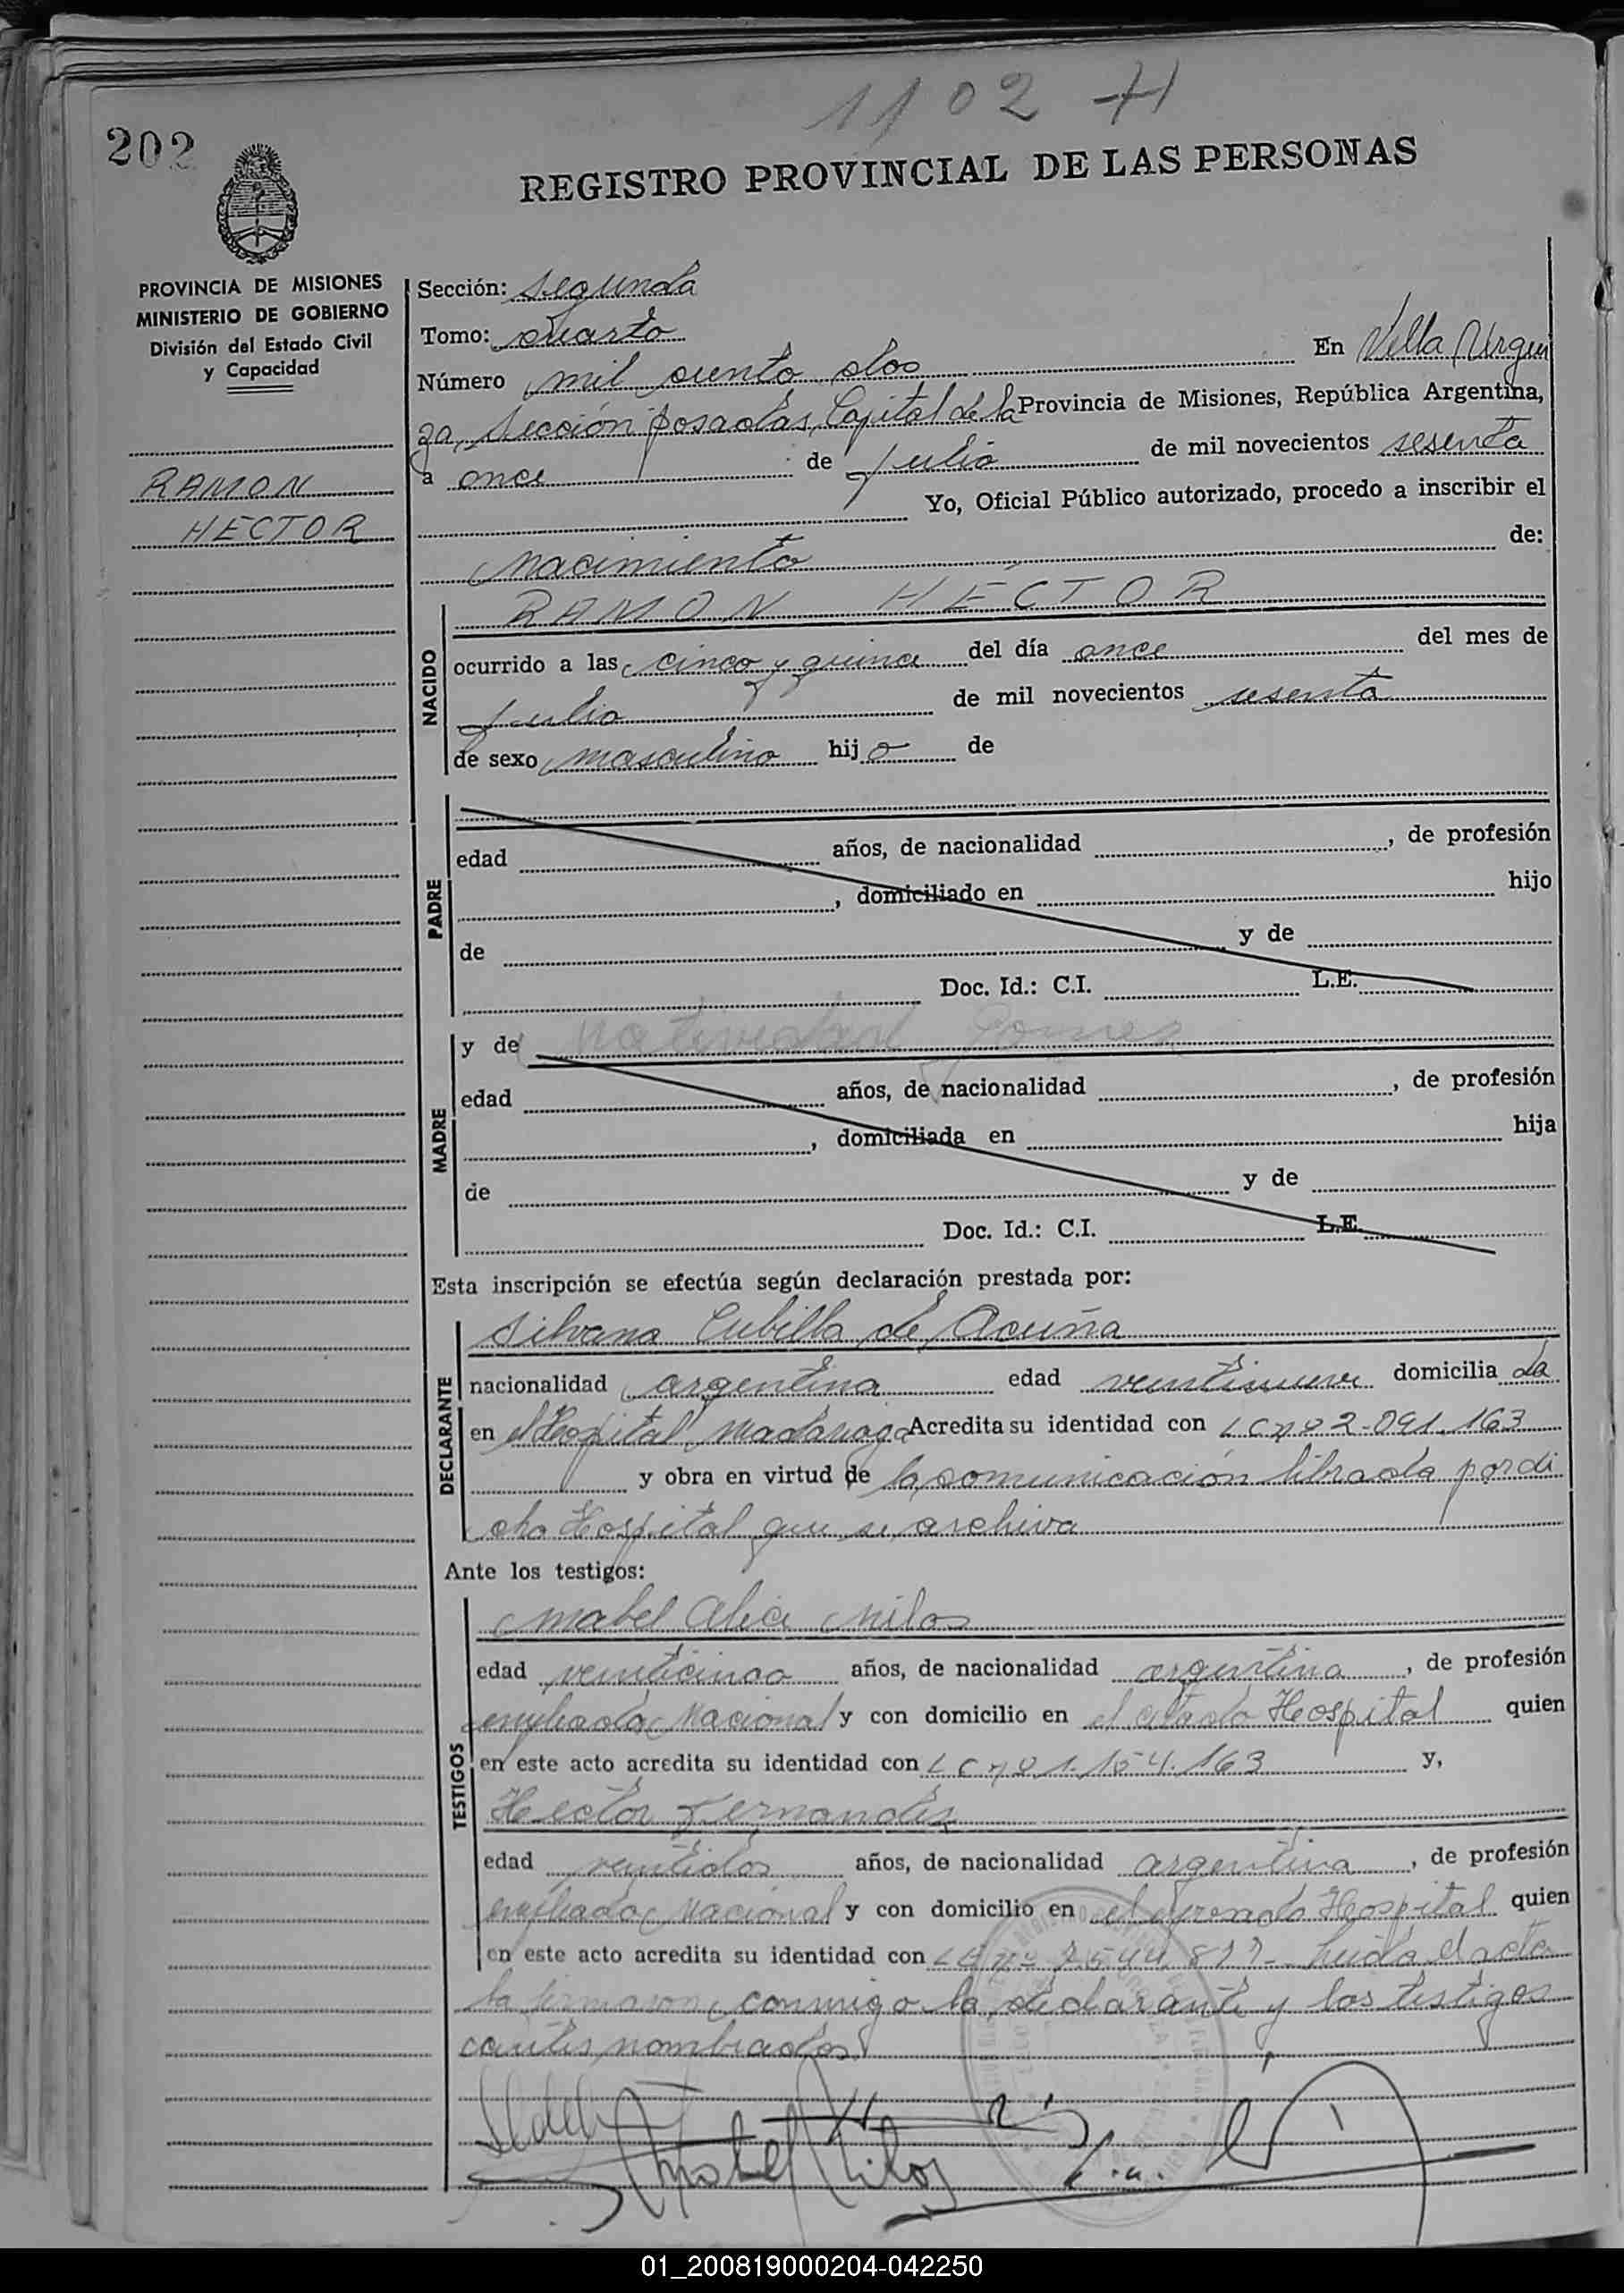 1102 H
202
REGISTRO PROVINCIAL DE LAS PERSONAS
PROVINCIA DE MISIONES
MINISTERIO DE GOBIERNO
División del Estado Civil
y Capacidad
RAMON
HECTOR
Sección: Segunda
Tomo: Cuarto
Número mil ciento dos En Villa Urqui
za, Sección Posadas, Capital de la Provincia de Misiones, República Argentina,
a once de Julio de mil novecientos sesenta
Yo, Oficial Público autorizado, procedo a inscribir el
Nacimiento de:
NACIDO
RAMON HÉCTOR
ocurrido a las cinco y quince del día once del mes de
Julio de mil novecientos sesenta
de sexo masculino hijo de
PADRE
edad años, de nacionalidad , de profesión
, domiciliado en hijo
de y de
Doc. Id.: C.I. L.E.
MADRE
y de Natividad Gomez
edad años, de nacionalidad , de profesión
, domiciliada en hija
de y de
Doc. Id.: C.I. L.E.
Esta inscripción se efectúa según declaración prestada por:
DECLARANTE
Silvana Cubilla de Acuña
nacionalidad argentina edad veintinueve domiciliada
en el Hospital Madariaga Acredita su identidad con LC nº 2-091.163
y obra en virtud de la comunicación librada por di
cho Hospital que se archiva
Ante los testigos:
TESTIGOS
Mabel Alicia Milos
edad veinticinco años, de nacionalidad argentina, de profesión
empleada Nacional y con domicilio en el citado Hospital quien
en este acto acredita su identidad con LC nº 1.154.163 y,
Hector Fernandez
edad veintidos años, de nacionalidad argentina, de profesión
empleado Nacional y con domicilio en el Hospital quien
en este acto acredita su identidad con LE nº leida el acta
la firmaron conmigo la declarante y los testigos
antes nombrados
Mabel Milos
01_200819000204-042250